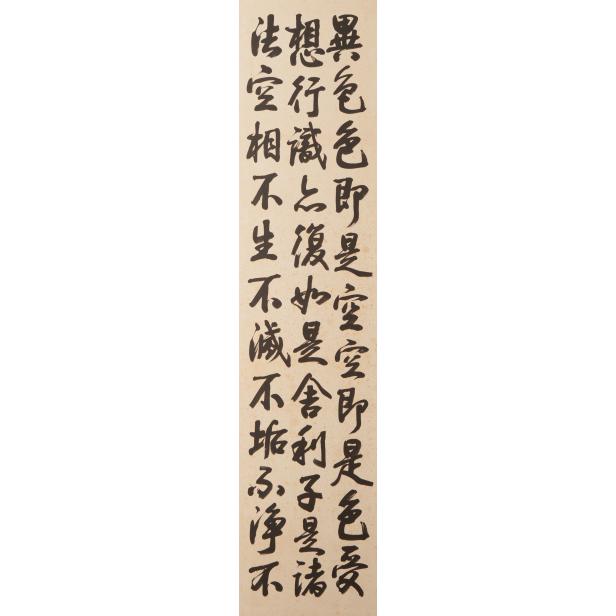 異色色即是空空即是色受
想行識亦復如是舍利子是諸
法空相不生不滅不垢不淨不